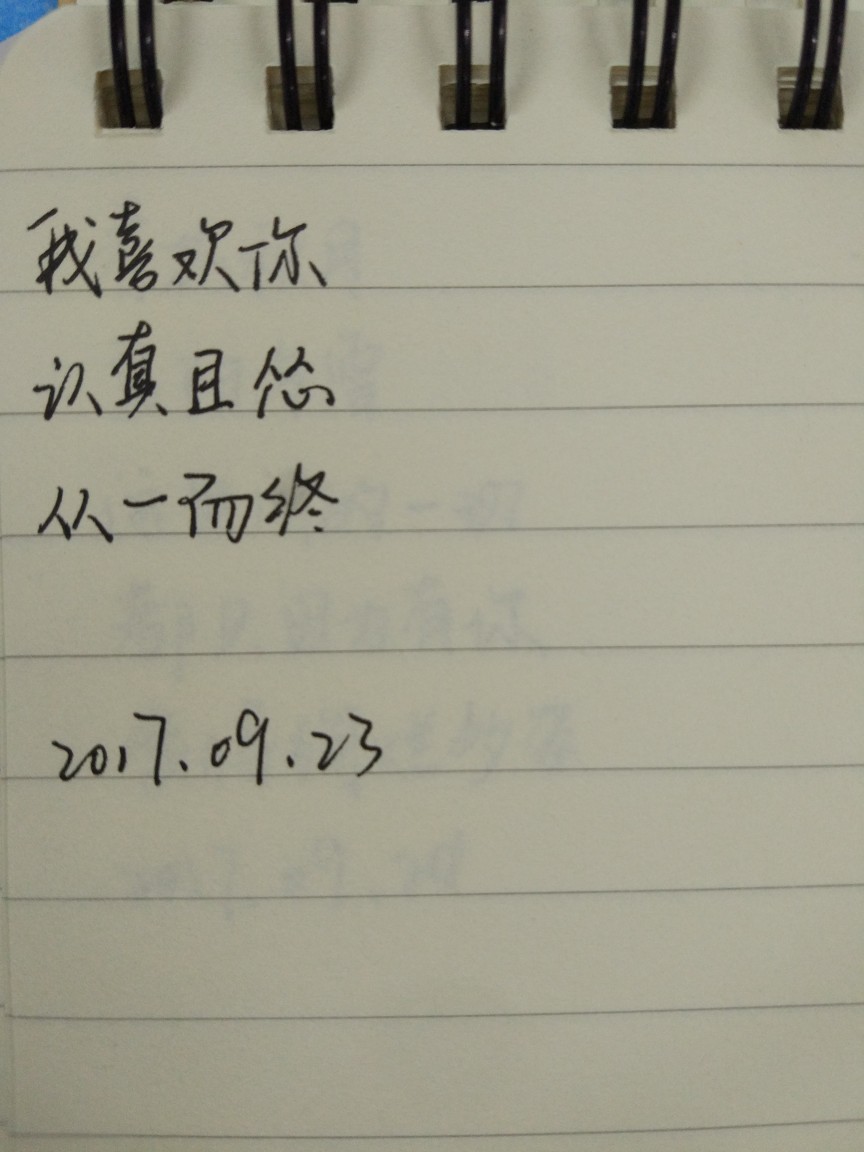 我喜欢你
认真且怂
从一而终
2017.09.23